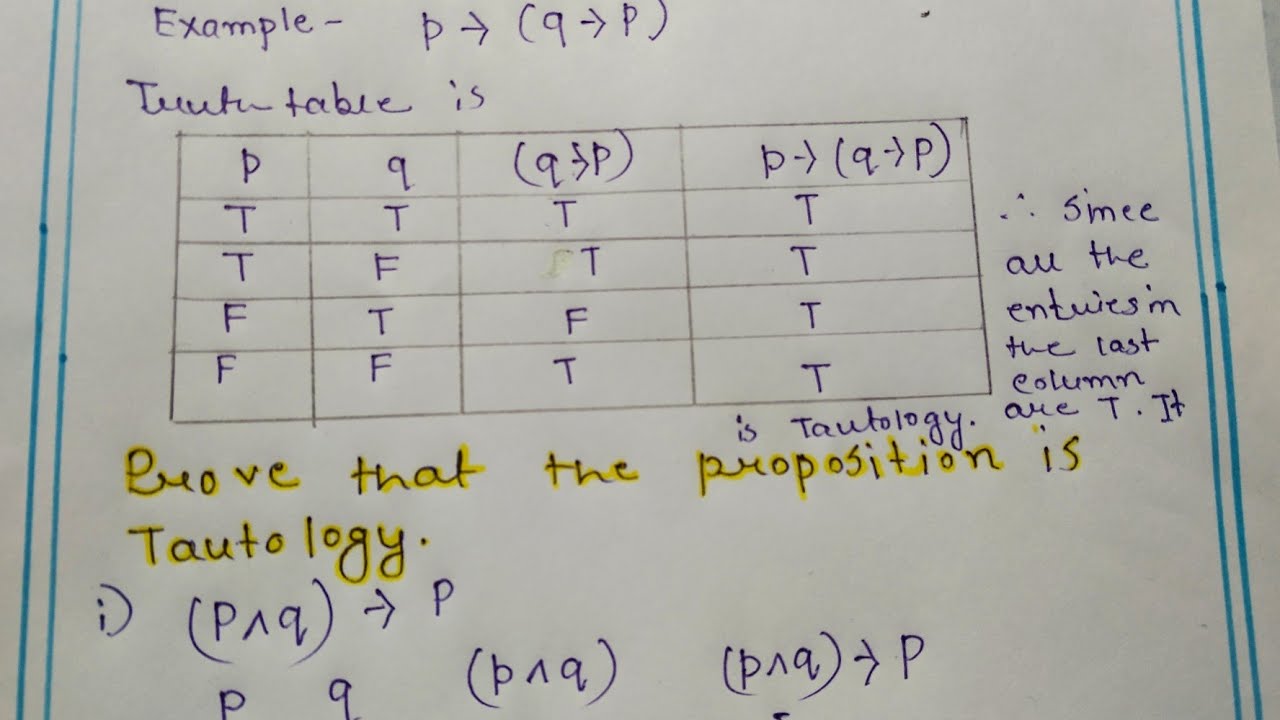 Example - p → (q → p)
Truth table is
p q (q→p) p → (q → p)
T T T T
T F T T
F T F T
F F T T
∴ Since
all the
entries in
the last
column
are T. It
is Tautology.
Prove that the proposition is
Tautology.
i) (p∧q) → p
p q (p∧q) (p∧q) → p